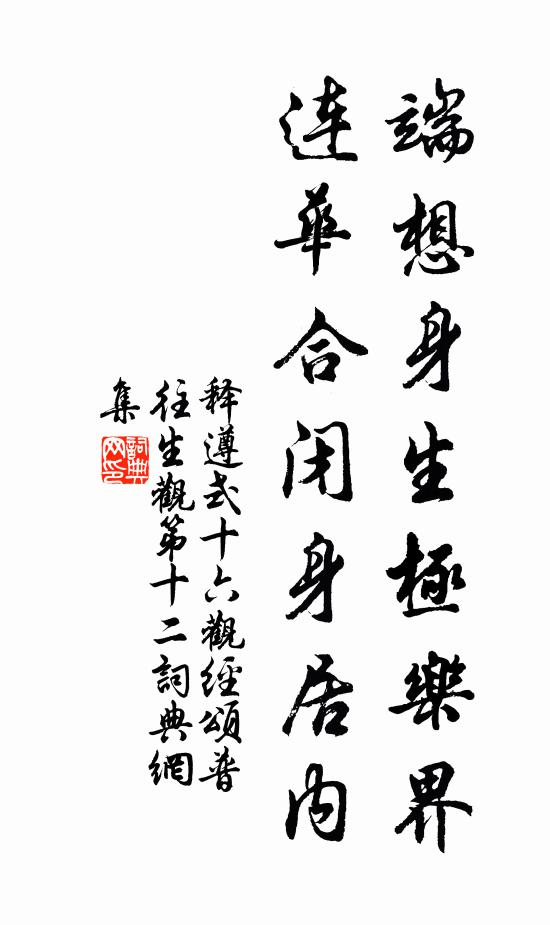 端想身生極樂界
連華合闭身居内
释遵式十六觀經頌普
往生觀第十二詞典網
集
詞典网印